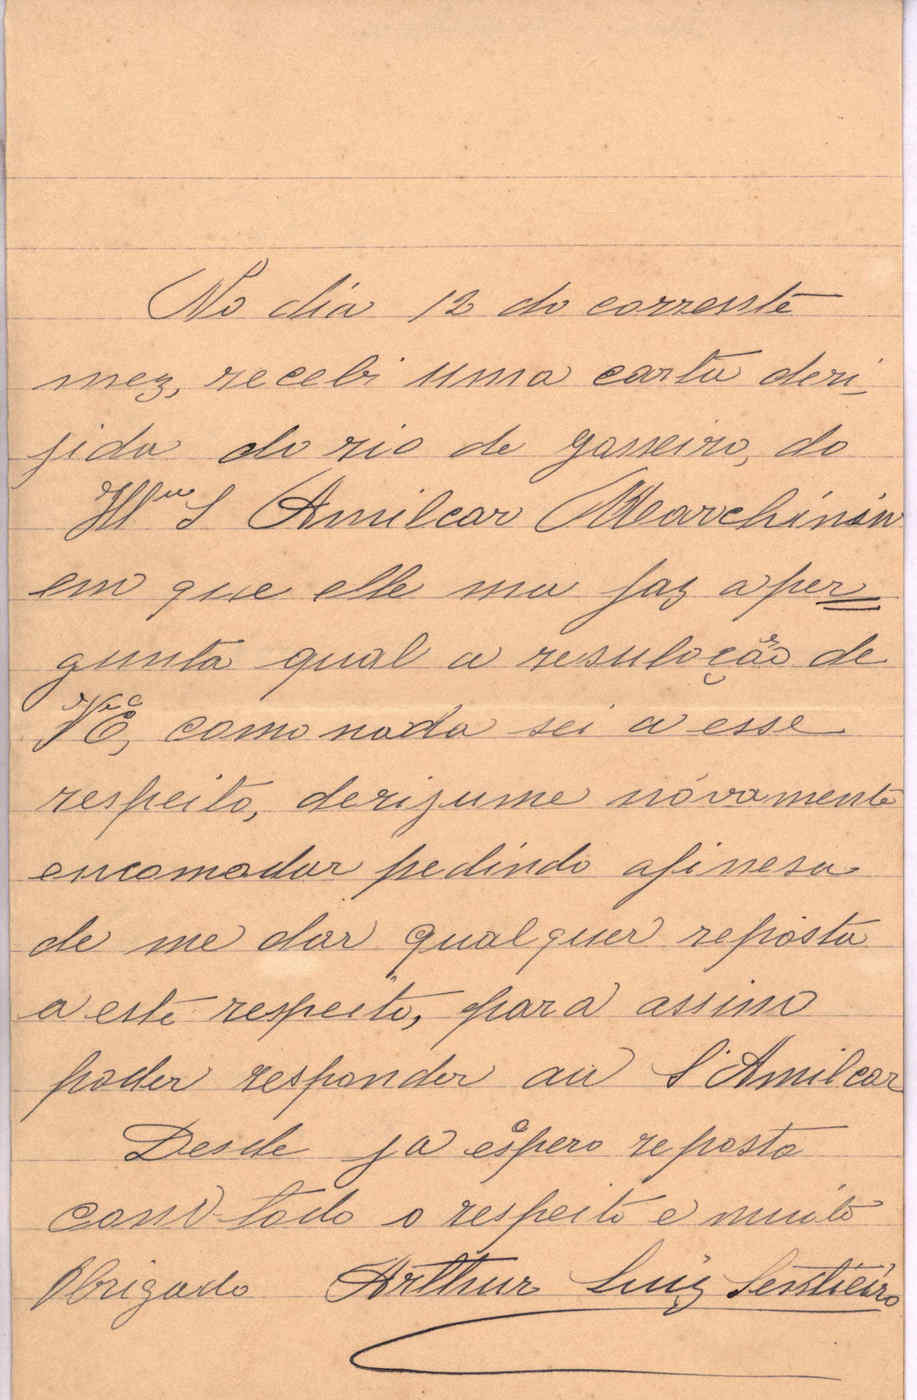 No dia 12 do corrente
mez, recebi uma carta deri-
jida do rio de ganeiro, do
Illmo S Amilcar Marchinin
em que elle ma faz a per=
gunta qual a resuloção de
V Ecª, como nada sei a esse
respeito, derijume nóvamente
encomodar pedindo afinesa
de me dar qualquer reposta
a este respeito, para assim
poder responder au S'Amilcar
Desde ja espero reposta
com todo o respeito e muito
Obrigado Arthur Luiz